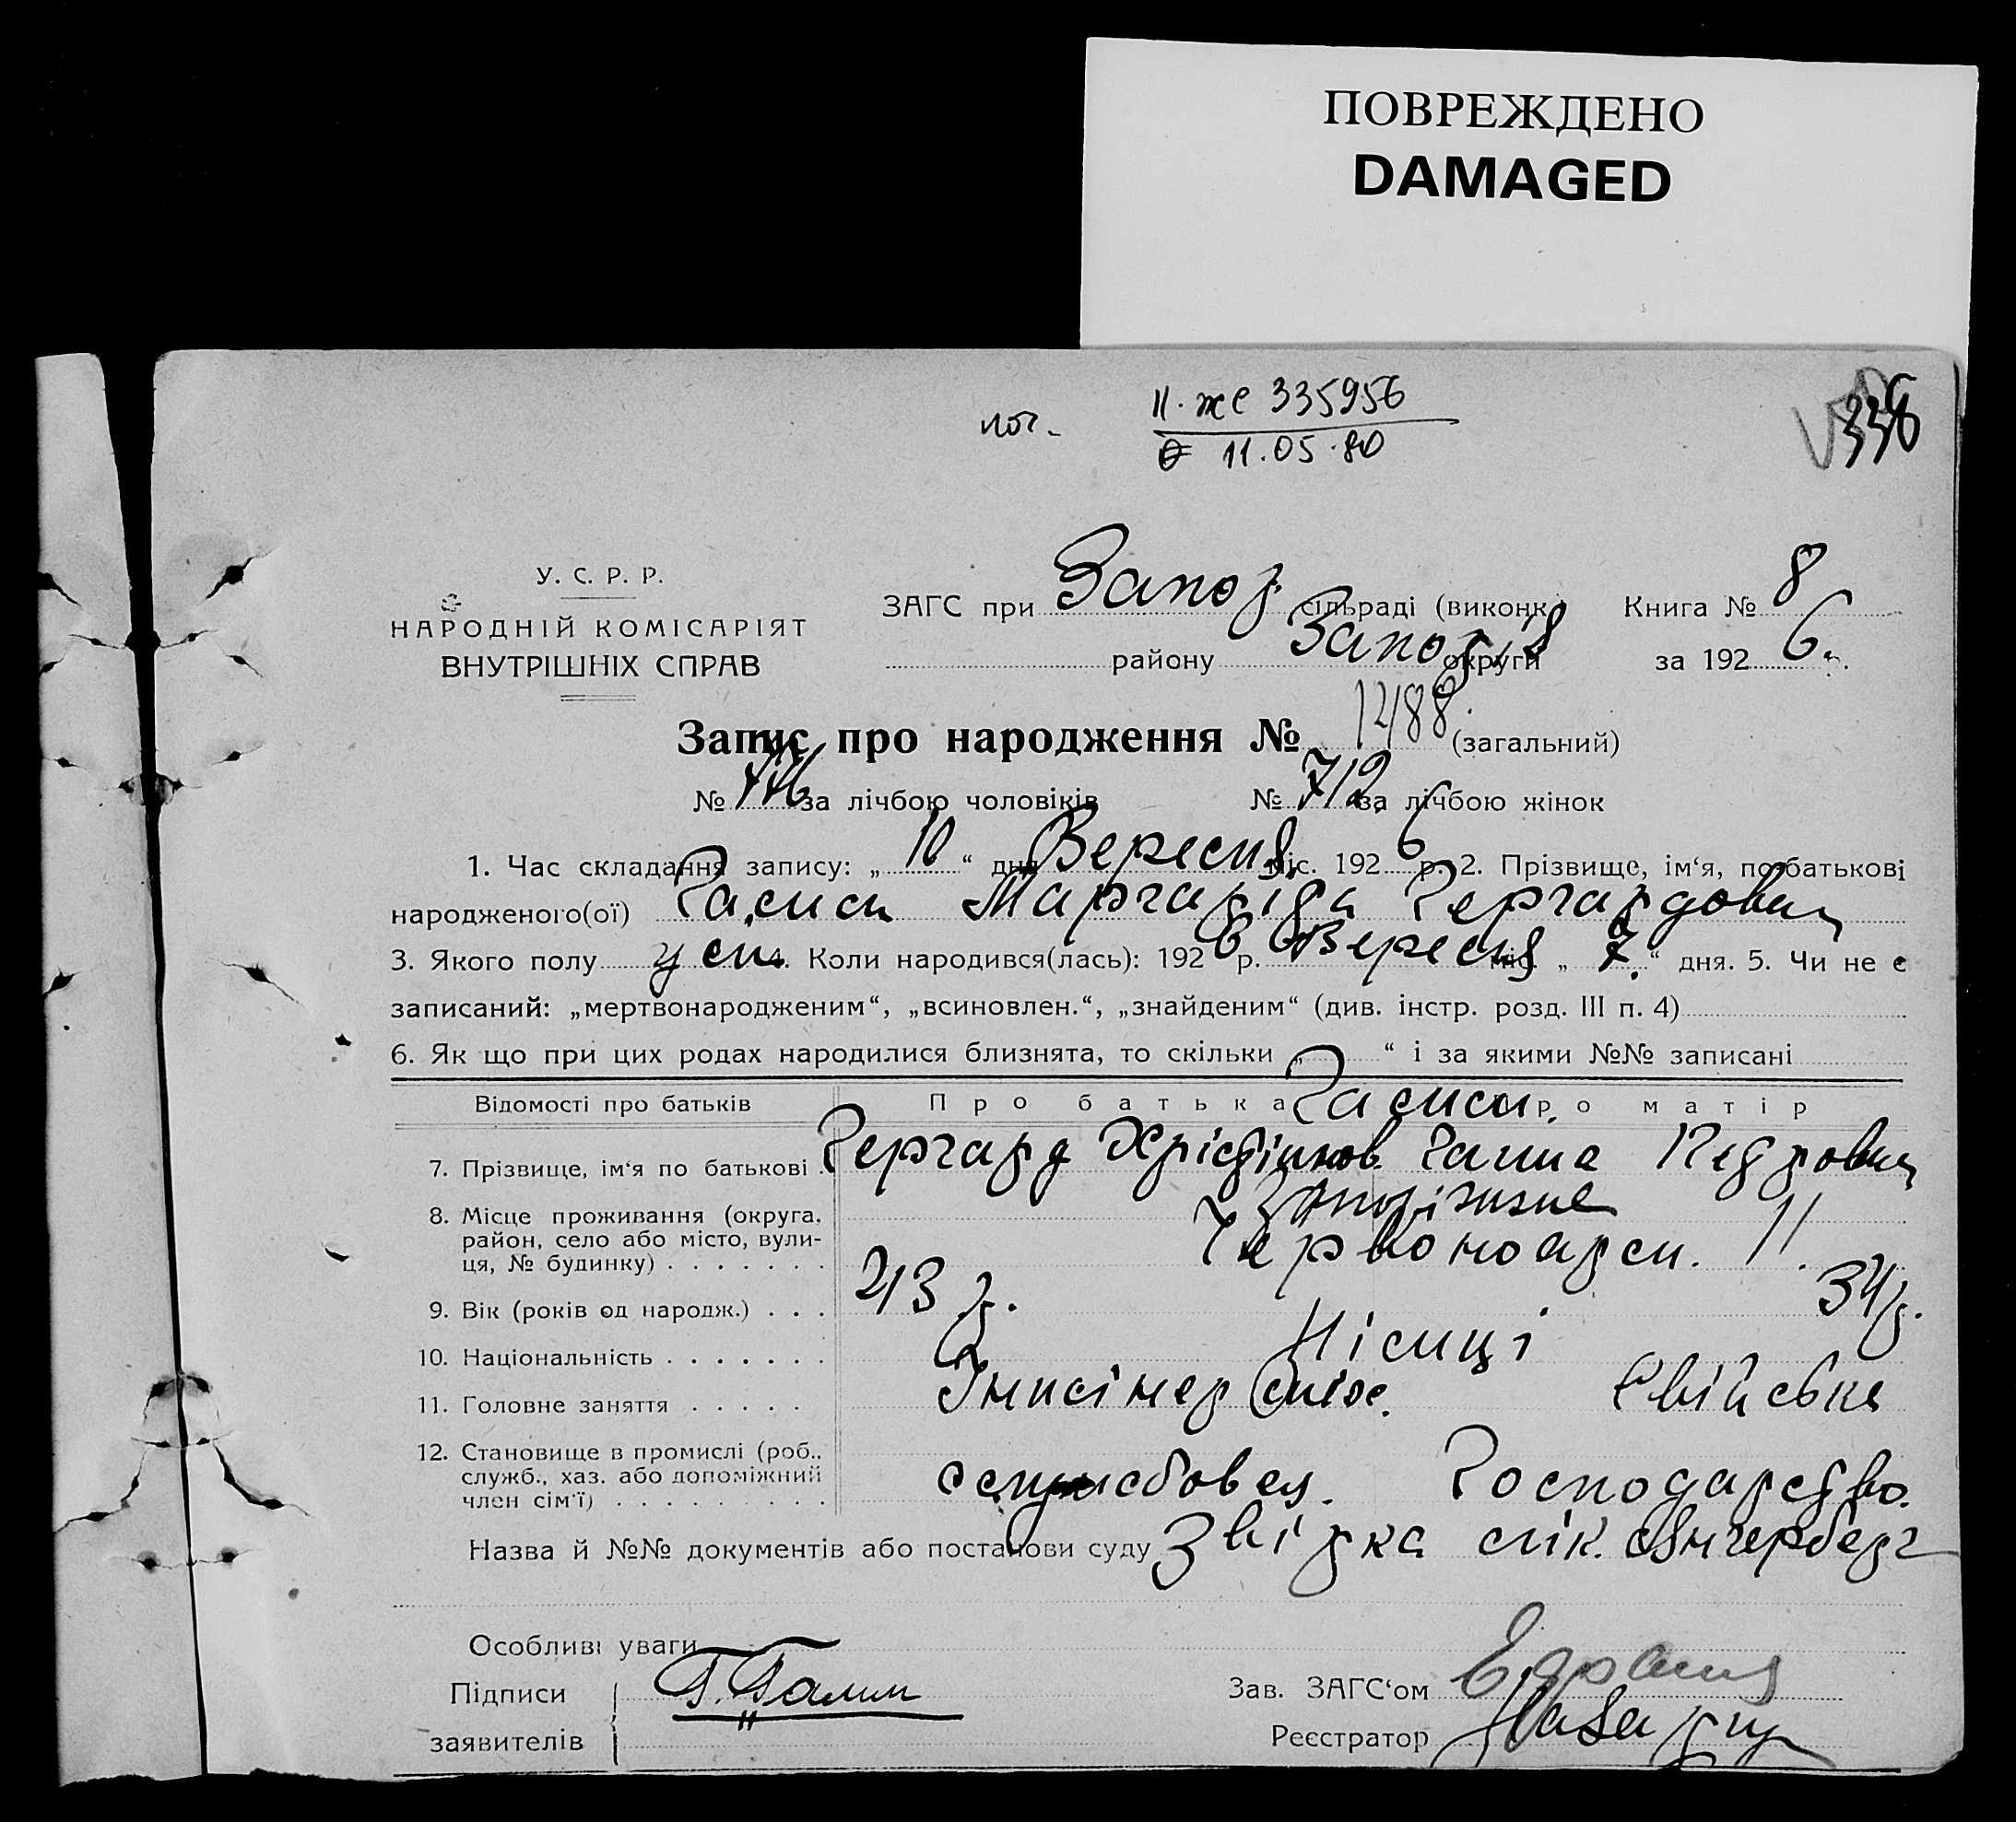 ПОВРЕЖДЕНО
DAMAGED
11. же 335956
11.05.80
336
У. С. Р. Р.
НАРОДНІЙ КОМІСАРІЯТ
ВНУТРІШНІХ СПРАВ
ЗАГС при Запор сільраді (виконк.) Книга № 8
району Запор округи за 192 6.
Запис про народження № 1488 (загальний)
№ за лічбою чоловіків № 712 за лічбою жінок
1. Час складання запису: „ 10 “ дня Вересня міс. 192 6 р. 2. Прізвище, ім‘я, по батькові
народженого(ої) Маргаріда Гергардовна
3. Якого полу 4. Коли народився(лась): 192 6 р. Вересня міс. „ 7. “ дня. 5. Чи не є
записаний: „мертвонародженим“, „всиновлен.“, „знайденим“ (див. інстр. розд. III п. 4)
6. Як що при цих родах народилися близнята, то скільки „ “ і за якими №№ записані
Відомості про батьків Про батька Про матір
7. Прізвище, ім‘я по батькові Гергард Ганна Педровна
8. Місце проживання (округа, Запоріжжє
район, село або місто, вули- Червоноарм. 11.
ця, № будинку)
9. Вік (років од народж.) 43 р. 34 р.
10. Національність Німці
11. Головне заняття Інжінер мех. Свійське
12. Становище в промислі (роб.,
служб., хаз. або допоміжний Господарство.
член сім‘ї)
Назва й №№ документів або постанови суду Звідка лік.
Особливі уваги
Підписи Зав. ЗАГС‘ом
заявителів Реєстратор